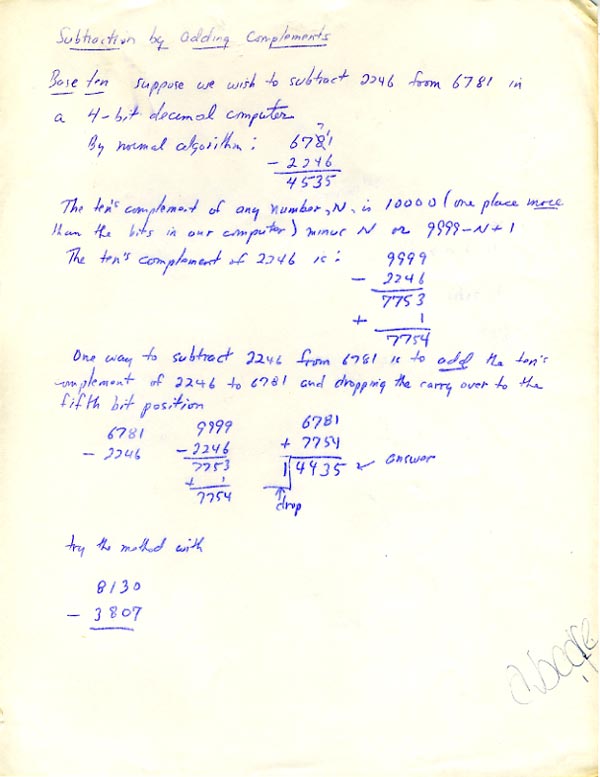 Subtraction by adding Complements
Base ten suppose we wish to subtract 2246 from 6781 in
a 4-bit decimal computer.
By normal algorithm:
7
6781
- 2246
4535
The ten's complement of any number, N, is 10000 (one place more
than the bits in our computer) minus N or 9999-N+1
The ten's complement of 2246 is:
9999
- 2246
7753
+ 1
7754
One way to subtract 2246 from 6781 is to add the ten's
complement of 2246 to 6781 and dropping the carry over to the
fifth bit position
6781
- 2246
9999
- 2246
7753
+ 1
7754
6781
+ 7754
1 4435 answer
drop
try the method with
8130
- 3807